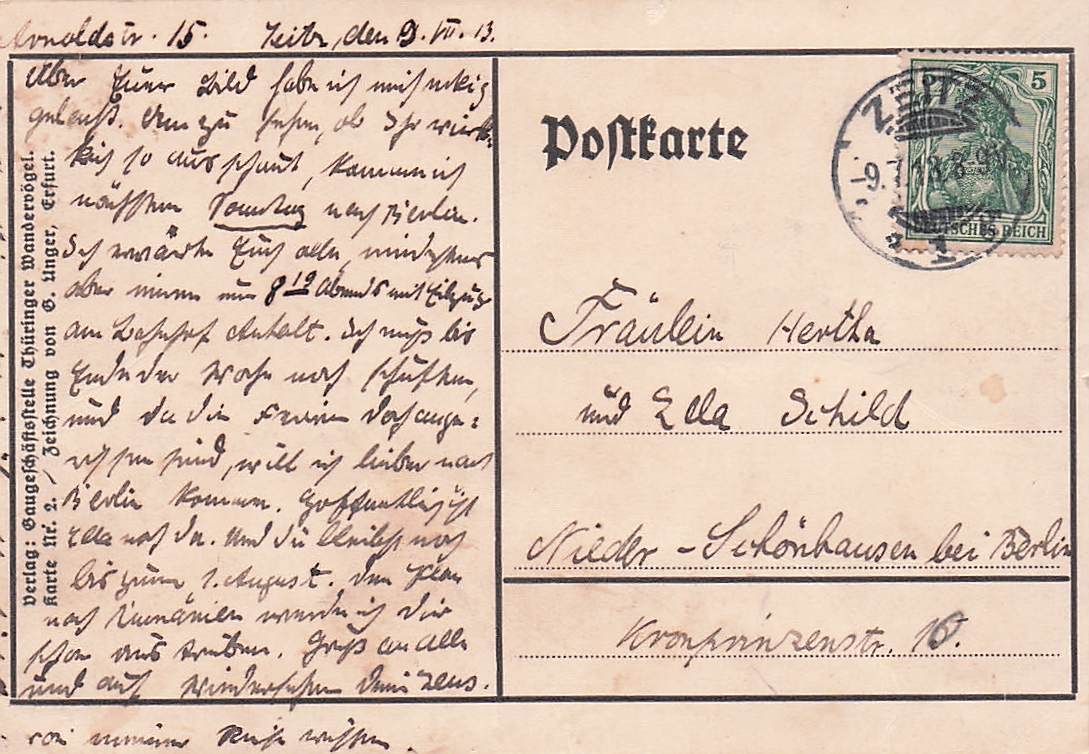 Arnoldstr. 15. Zeitz, den 9. VII. 13.
Über Euer Bild habe ich mich
gelacht. Um zu sehen, ob Ihr wirk-
lich so ausschaut, komme ich
nächsten Sonntag nach Berlin.
Ich erwarte Euch alle, mindestens
aber einen um 8 19 Abends mit Eilzug
am Bahnhof Anhalt. Ich muß bis
Ende der Woche noch schuften,
und da die Ferien doch ange=
rissen sind, will ich lieber nach
Berlin kommen. Hoffentlich ist
Ella noch da. Und du bleibst noch
bis zum 1. August. Den Plan
nach Rumänien werde ich Dir
schon austreiben. Gruß an Alle
und auf Wiedersehen Dein Zeus.
von meiner Reise wissen.
Verlag: Gaugeschäftsstelle Thüringer Wandervögel.
Karte Nr. 2. / Zeichnung von G. Unger, Erfurt.
Postkarte
ZEITZ
-9.7.13.8-9N.
1
5
DEUTSCHES REICH
Fräulein Hertha
und Ella Schild
Nieder-Schönhausen bei Berlin
Kronprinzenstr. 16.